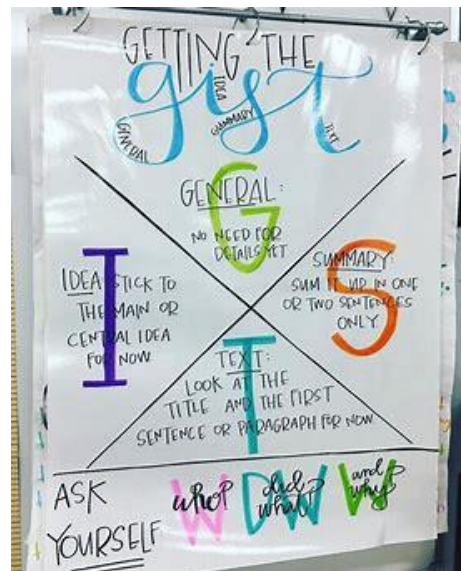 GETTING THE
gist
GENERAL
IDEA
SUMMARY
TEXT
G
GENERAL:
NO NEED FOR
DETAILS YET
I
IDEA STICK TO
THE MAIN OR
CENTRAL IDEA
FOR NOW
S
SUMMARY:
SUM IT UP IN ONE
OR TWO SENTENCES
ONLY
T
TEXT:
LOOK AT THE
TITLE AND THE FIRST
SENTENCE OR PARAGRAPH FOR NOW
ASK
YOURSELF
W
who?
DW
did what?
W
and why?